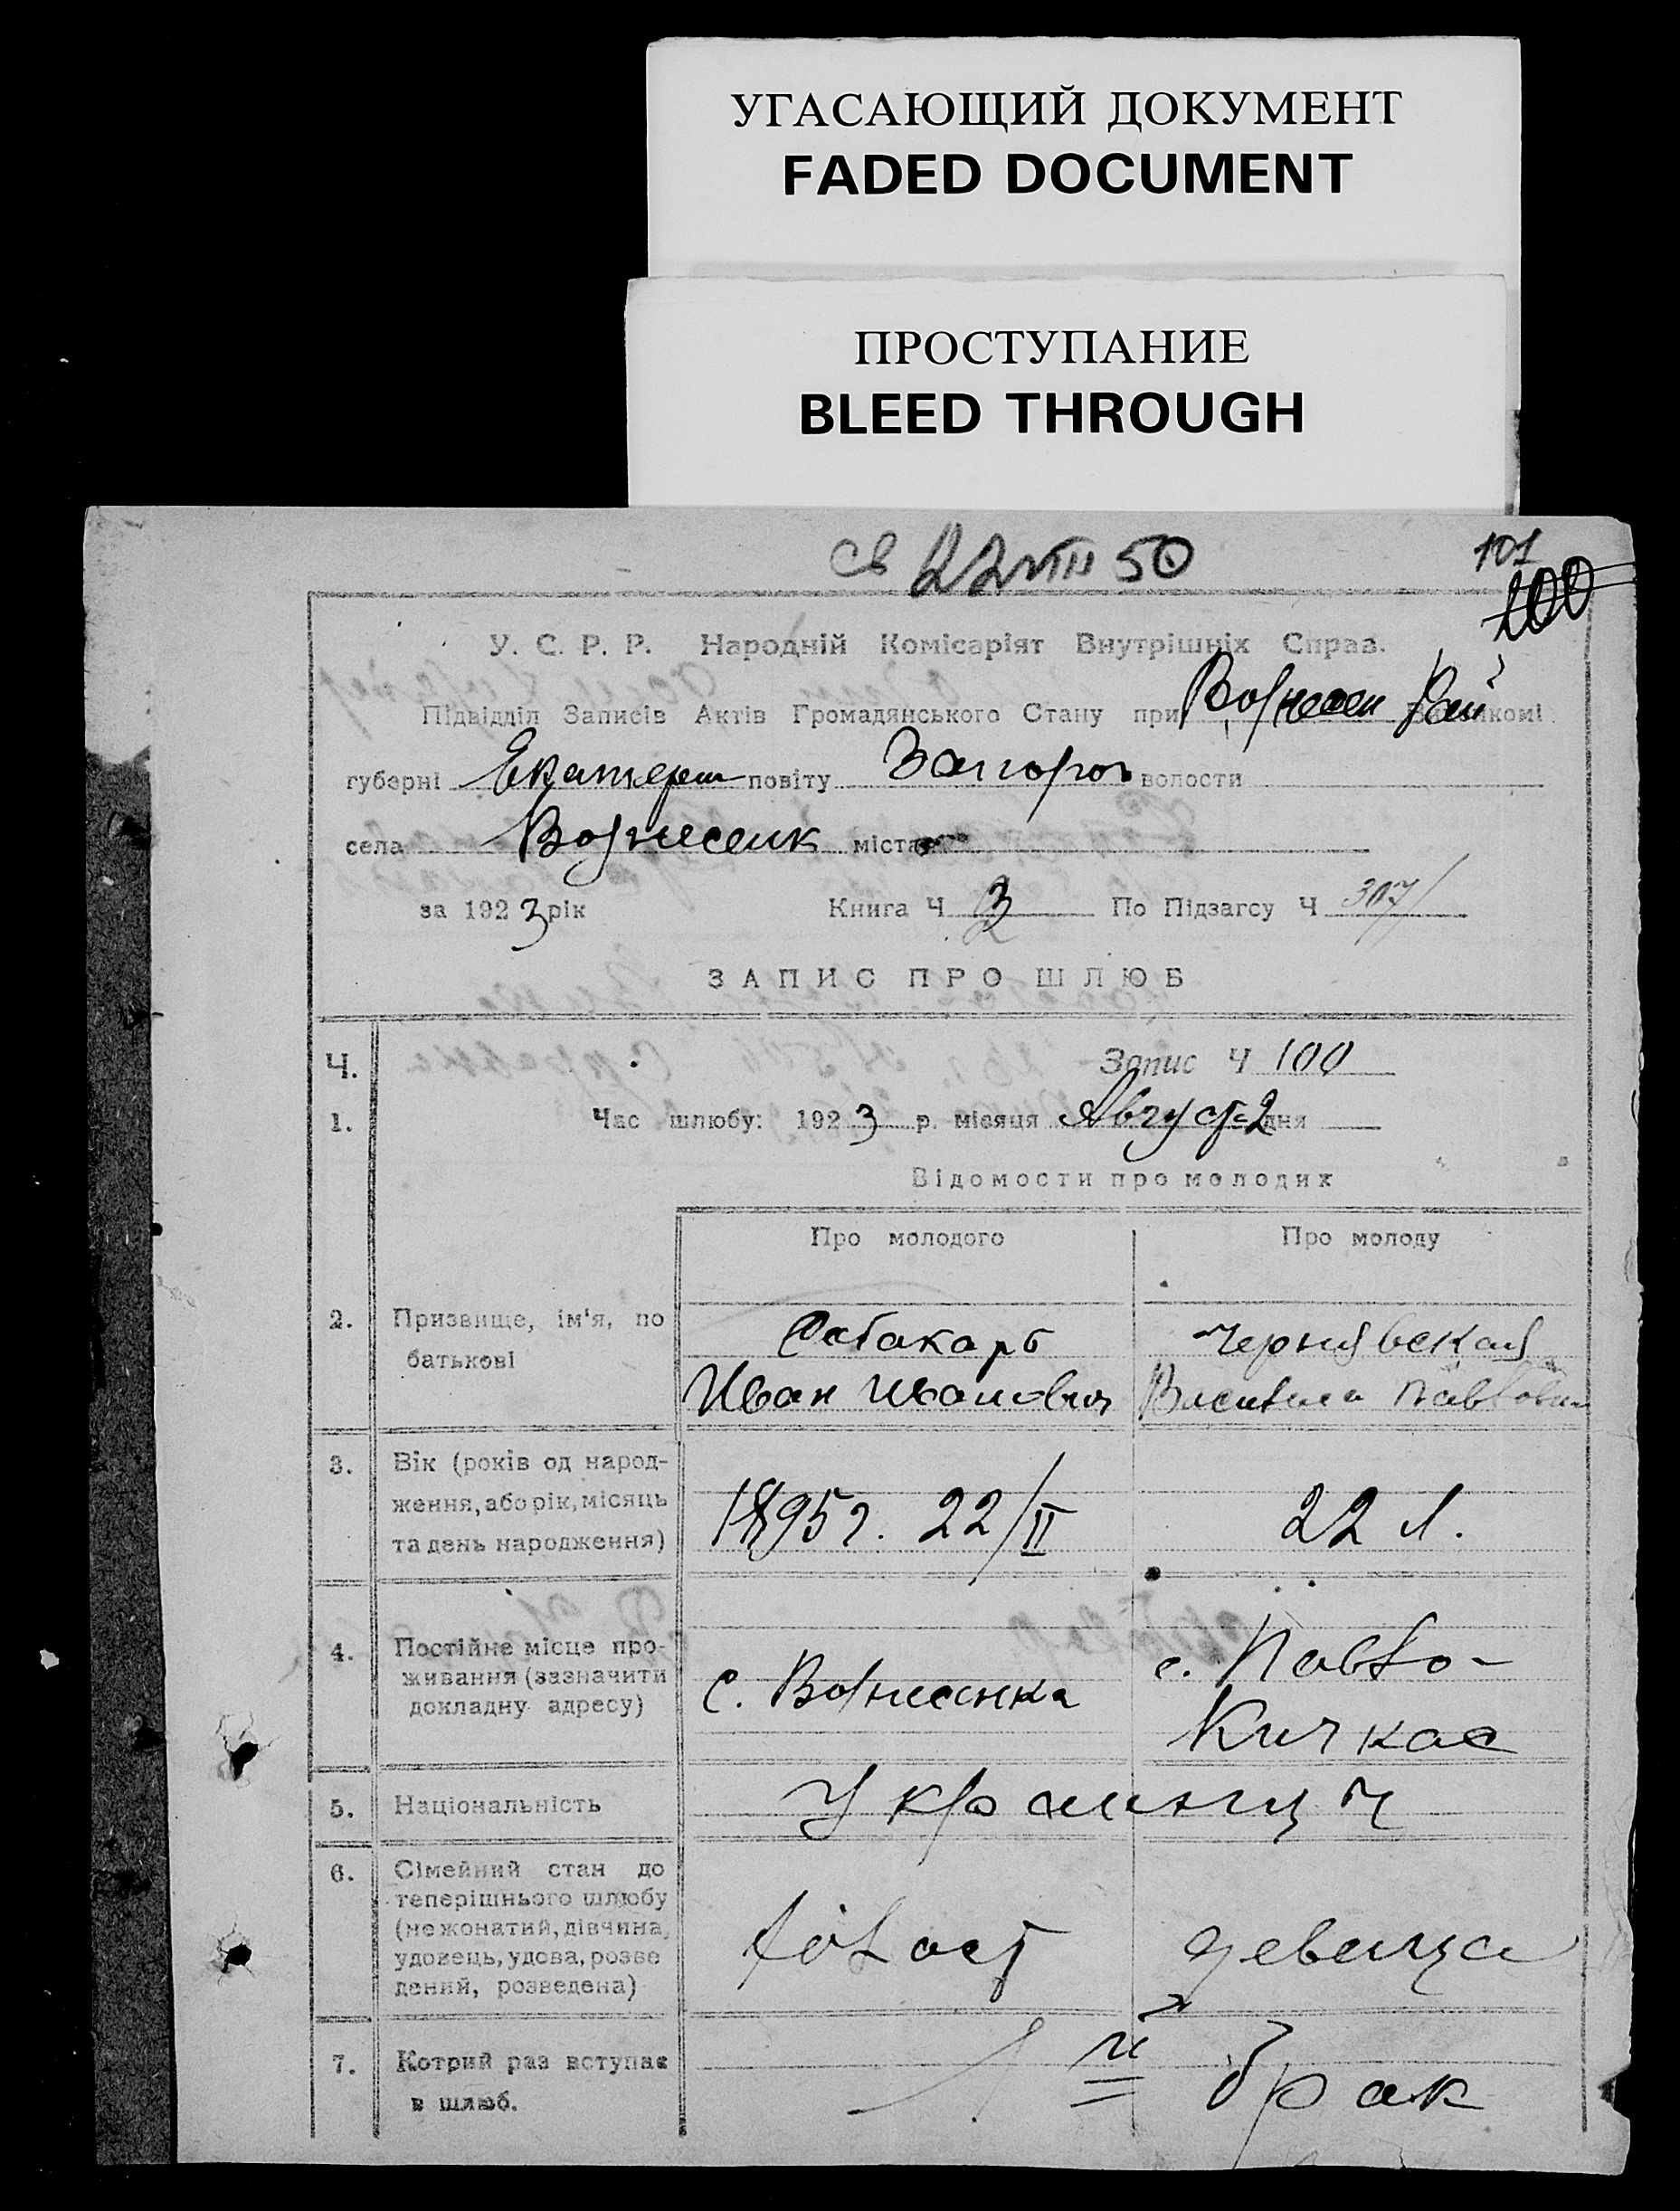 УГАСАЮЩИЙ ДОКУМЕНТ
FADED DOCUMENT
ПРОСТУПАНИЕ
BLEED THROUGH
св 22 VIII 50
101
100
У. С. Р. Р. Народній Комісаріят Внутрішніх Справ.
Підвідділ Записів Актів Громадянського Стану при Вознесен Рай Виконкомі
губерні Екатерин повіту Запорож волости
села Вознесенк міста
за 1923 рік Книга Ч 3 По Підзагсу Ч 307/
ЗАПИС ПРО ШЛЮБ
Ч. Запис Ч 100
1. Час шлюбу: 1923 р. місяця Август 2 дня
Відомости про молодих
Про молодого Про молоду
2. Призвище, ім'я, по батькові
Чернявская
Иван Иванович Василиса Павловн
3. Вік (років од народ-
ження, або рік, місяць
та день народження)
1895 г. 22/II 22 л.
4. Постійне місце про-
живання (зазначити
докладну адресу)
с. Вознесенка с. Павло-
Кичкас
5. Національність Украинцы
6. Сімейний стан до
теперішнього шлюбу
(не жонатий, дівчина,
удовець, удова, розве
дений, розведена)
холост девица
7. Котрий раз вступає
в шлюб.
1й брак